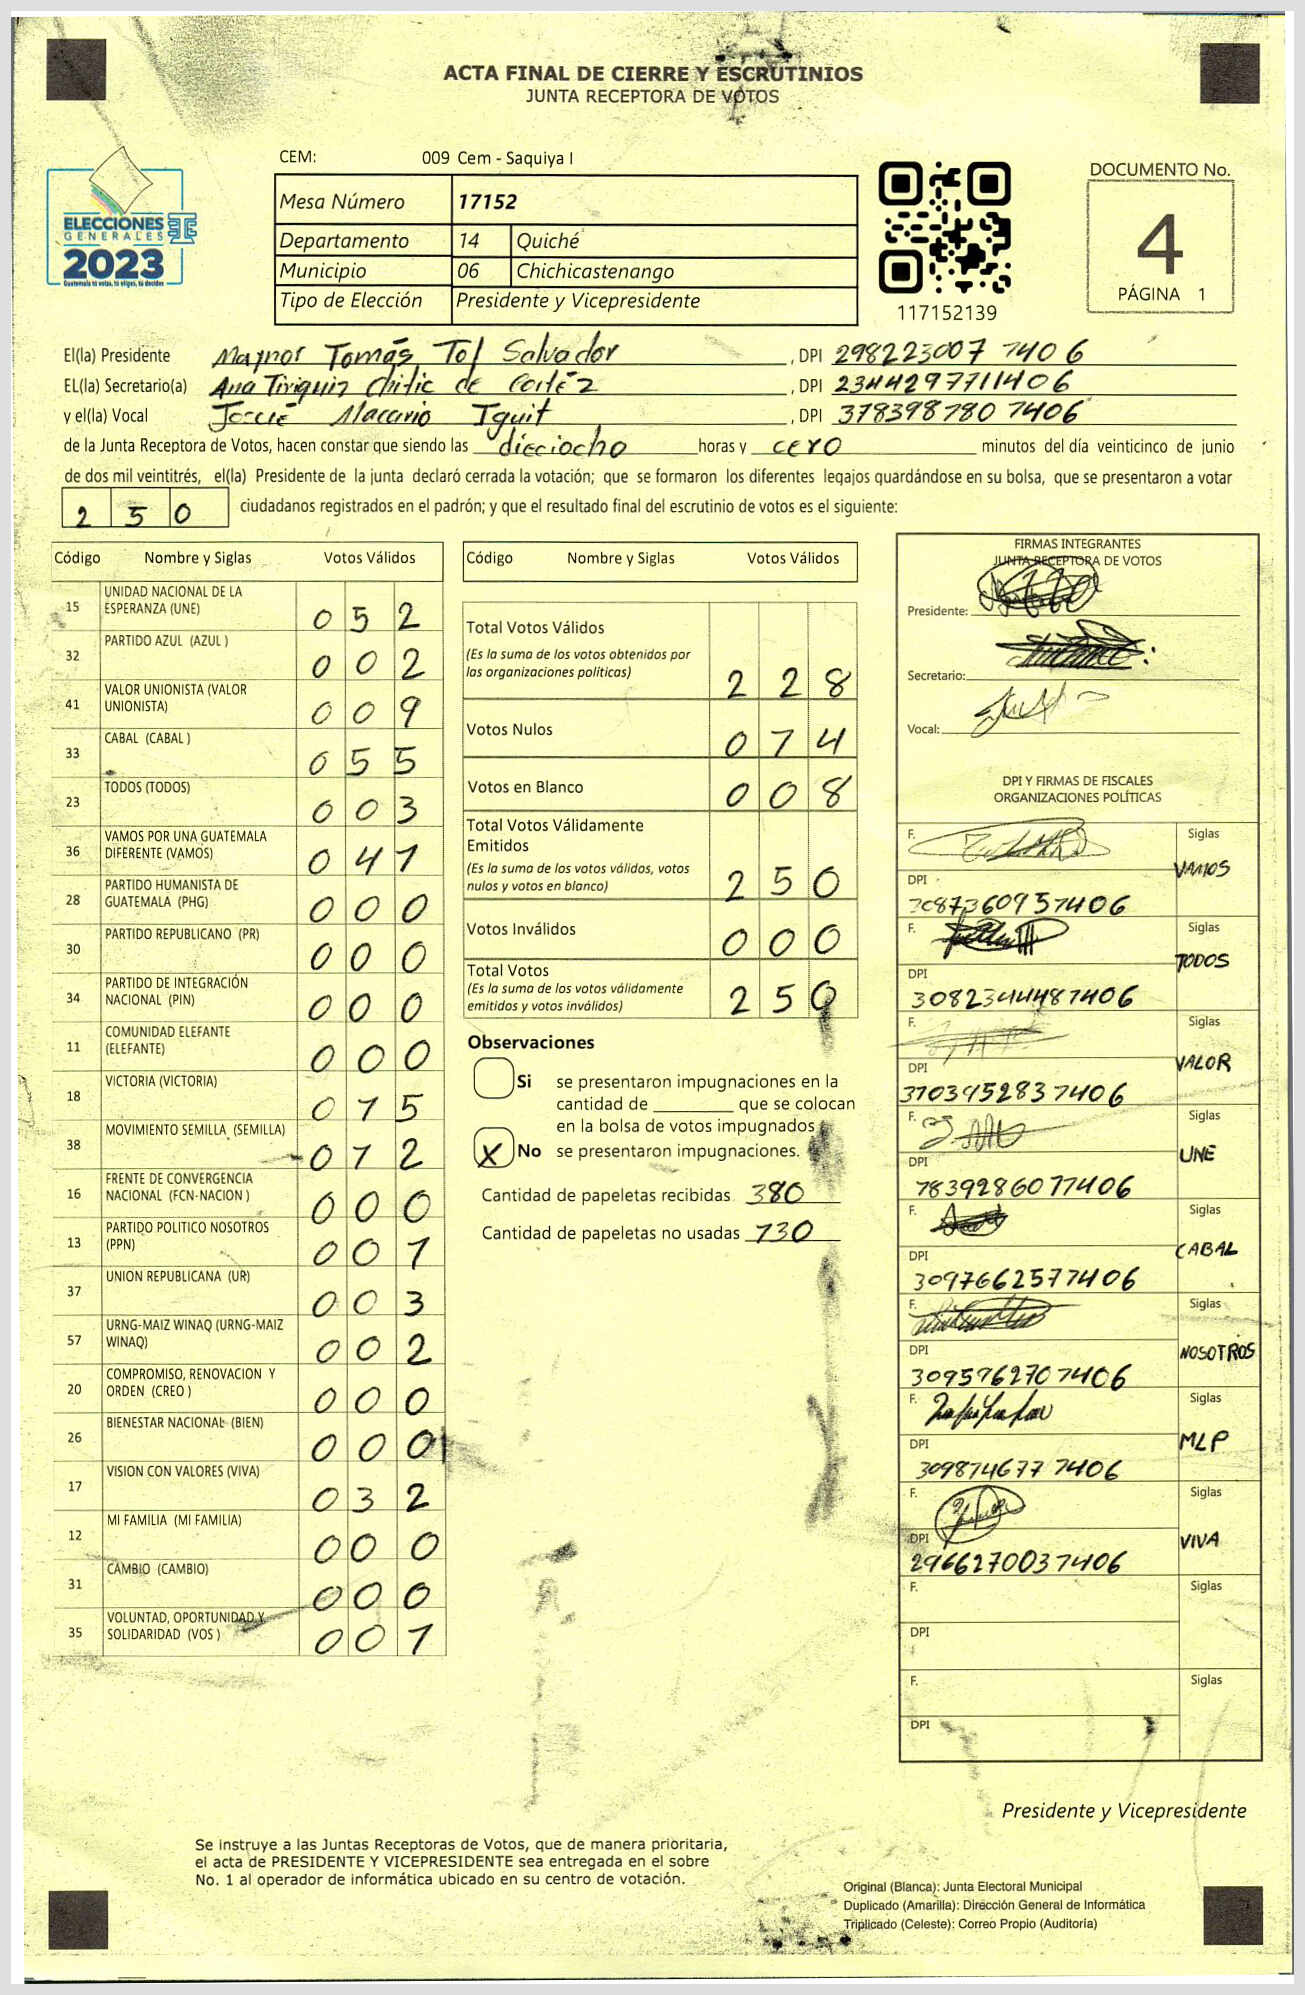 ACTA FINAL DE CIERRE Y ESCRUTINIOS
JUNTA RECEPTORA DE VOTOS
ELECCIONES
GENERALES
2023
Guatemala tú votas, tú eliges, tú decides
CEM: 009 Cem - Saquiya I
Mesa Número 17152
Departamento 14 Quiché
Municipio 06 Chichicastenango
Tipo de Elección Presidente y Vicepresidente
117152139
DOCUMENTO No.
4
PÁGINA 1
El(la) Presidente Maynor Tomás Tol Salvador , DPI 298223007 7406
EL(la) Secretario(a) Ana Tiriquiz Chitic de Cortéz , DPI 2344297711406
y el(la) Vocal Josué Macario Iguit , DPI 378398780 7406
de la Junta Receptora de Votos, hacen constar que siendo las dieciocho horas y cero minutos del día veinticinco de junio
de dos mil veintitrés, el(la) Presidente de la junta declaró cerrada la votación; que se formaron los diferentes legajos guardándose en su bolsa, que se presentaron a votar
250 ciudadanos registrados en el padrón; y que el resultado final del escrutinio de votos es el siguiente:
Código Nombre y Siglas Votos Válidos
15 UNIDAD NACIONAL DE LA ESPERANZA (UNE) 052
32 PARTIDO AZUL (AZUL ) 002
41 VALOR UNIONISTA (VALOR UNIONISTA) 009
33 CABAL (CABAL ) 055
23 TODOS (TODOS) 003
36 VAMOS POR UNA GUATEMALA DIFERENTE (VAMOS) 041
28 PARTIDO HUMANISTA DE GUATEMALA (PHG) 000
30 PARTIDO REPUBLICANO (PR) 000
34 PARTIDO DE INTEGRACIÓN NACIONAL (PIN) 000
11 COMUNIDAD ELEFANTE (ELEFANTE) 000
18 VICTORIA (VICTORIA) 015
38 MOVIMIENTO SEMILLA (SEMILLA) 012
16 FRENTE DE CONVERGENCIA NACIONAL (FCN-NACION ) 000
13 PARTIDO POLITICO NOSOTROS (PPN) 001
37 UNION REPUBLICANA (UR) 003
57 URNG-MAIZ WINAQ (URNG-MAIZ WINAQ) 002
20 COMPROMISO, RENOVACION Y ORDEN (CREO ) 000
26 BIENESTAR NACIONAL (BIEN) 000
17 VISION CON VALORES (VIVA) 032
12 MI FAMILIA (MI FAMILIA) 000
31 CAMBIO (CAMBIO) 000
35 VOLUNTAD, OPORTUNIDAD Y SOLIDARIDAD (VOS ) 001
Código Nombre y Siglas Votos Válidos
Total Votos Válidos
(Es la suma de los votos obtenidos por
las organizaciones políticas) 228
Votos Nulos 014
Votos en Blanco 008
Total Votos Válidamente
Emitidos
(Es la suma de los votos válidos, votos
nulos y votos en blanco) 250
Votos Inválidos 000
Total Votos
(Es la suma de los votos válidamente
emitidos y votos inválidos) 250
Observaciones
Si se presentaron impugnaciones en la
cantidad de ________ que se colocan
en la bolsa de votos impugnados
X No se presentaron impugnaciones.
Cantidad de papeletas recibidas 380
Cantidad de papeletas no usadas 130
FIRMAS INTEGRANTES
JUNTA RECEPTORA DE VOTOS
Presidente:
Secretario:
Vocal:
DPI Y FIRMAS DE FISCALES
ORGANIZACIONES POLÍTICAS
F. Siglas VAMOS
DPI 3087360957406
F. Siglas TODOS
DPI 3082344487406
F. Siglas VALOR
DPI 3703952837406
F. Siglas UNE
DPI 1839286071406
F. Siglas CABAL
DPI 3097662577406
F. Siglas NOSOTROS
DPI 309596270 7406
F. Siglas MLP
DPI 309874677 7406
F. Siglas VIVA
DPI 2966270037406
F. Siglas
DPI
F. Siglas
DPI
Presidente y Vicepresidente
Se instruye a las Juntas Receptoras de Votos, que de manera prioritaria,
el acta de PRESIDENTE Y VICEPRESIDENTE sea entregada en el sobre
No. 1 al operador de informática ubicado en su centro de votación.
Original (Blanca): Junta Electoral Municipal
Duplicado (Amarilla): Dirección General de Informática
Triplicado (Celeste): Correo Propio (Auditoría)